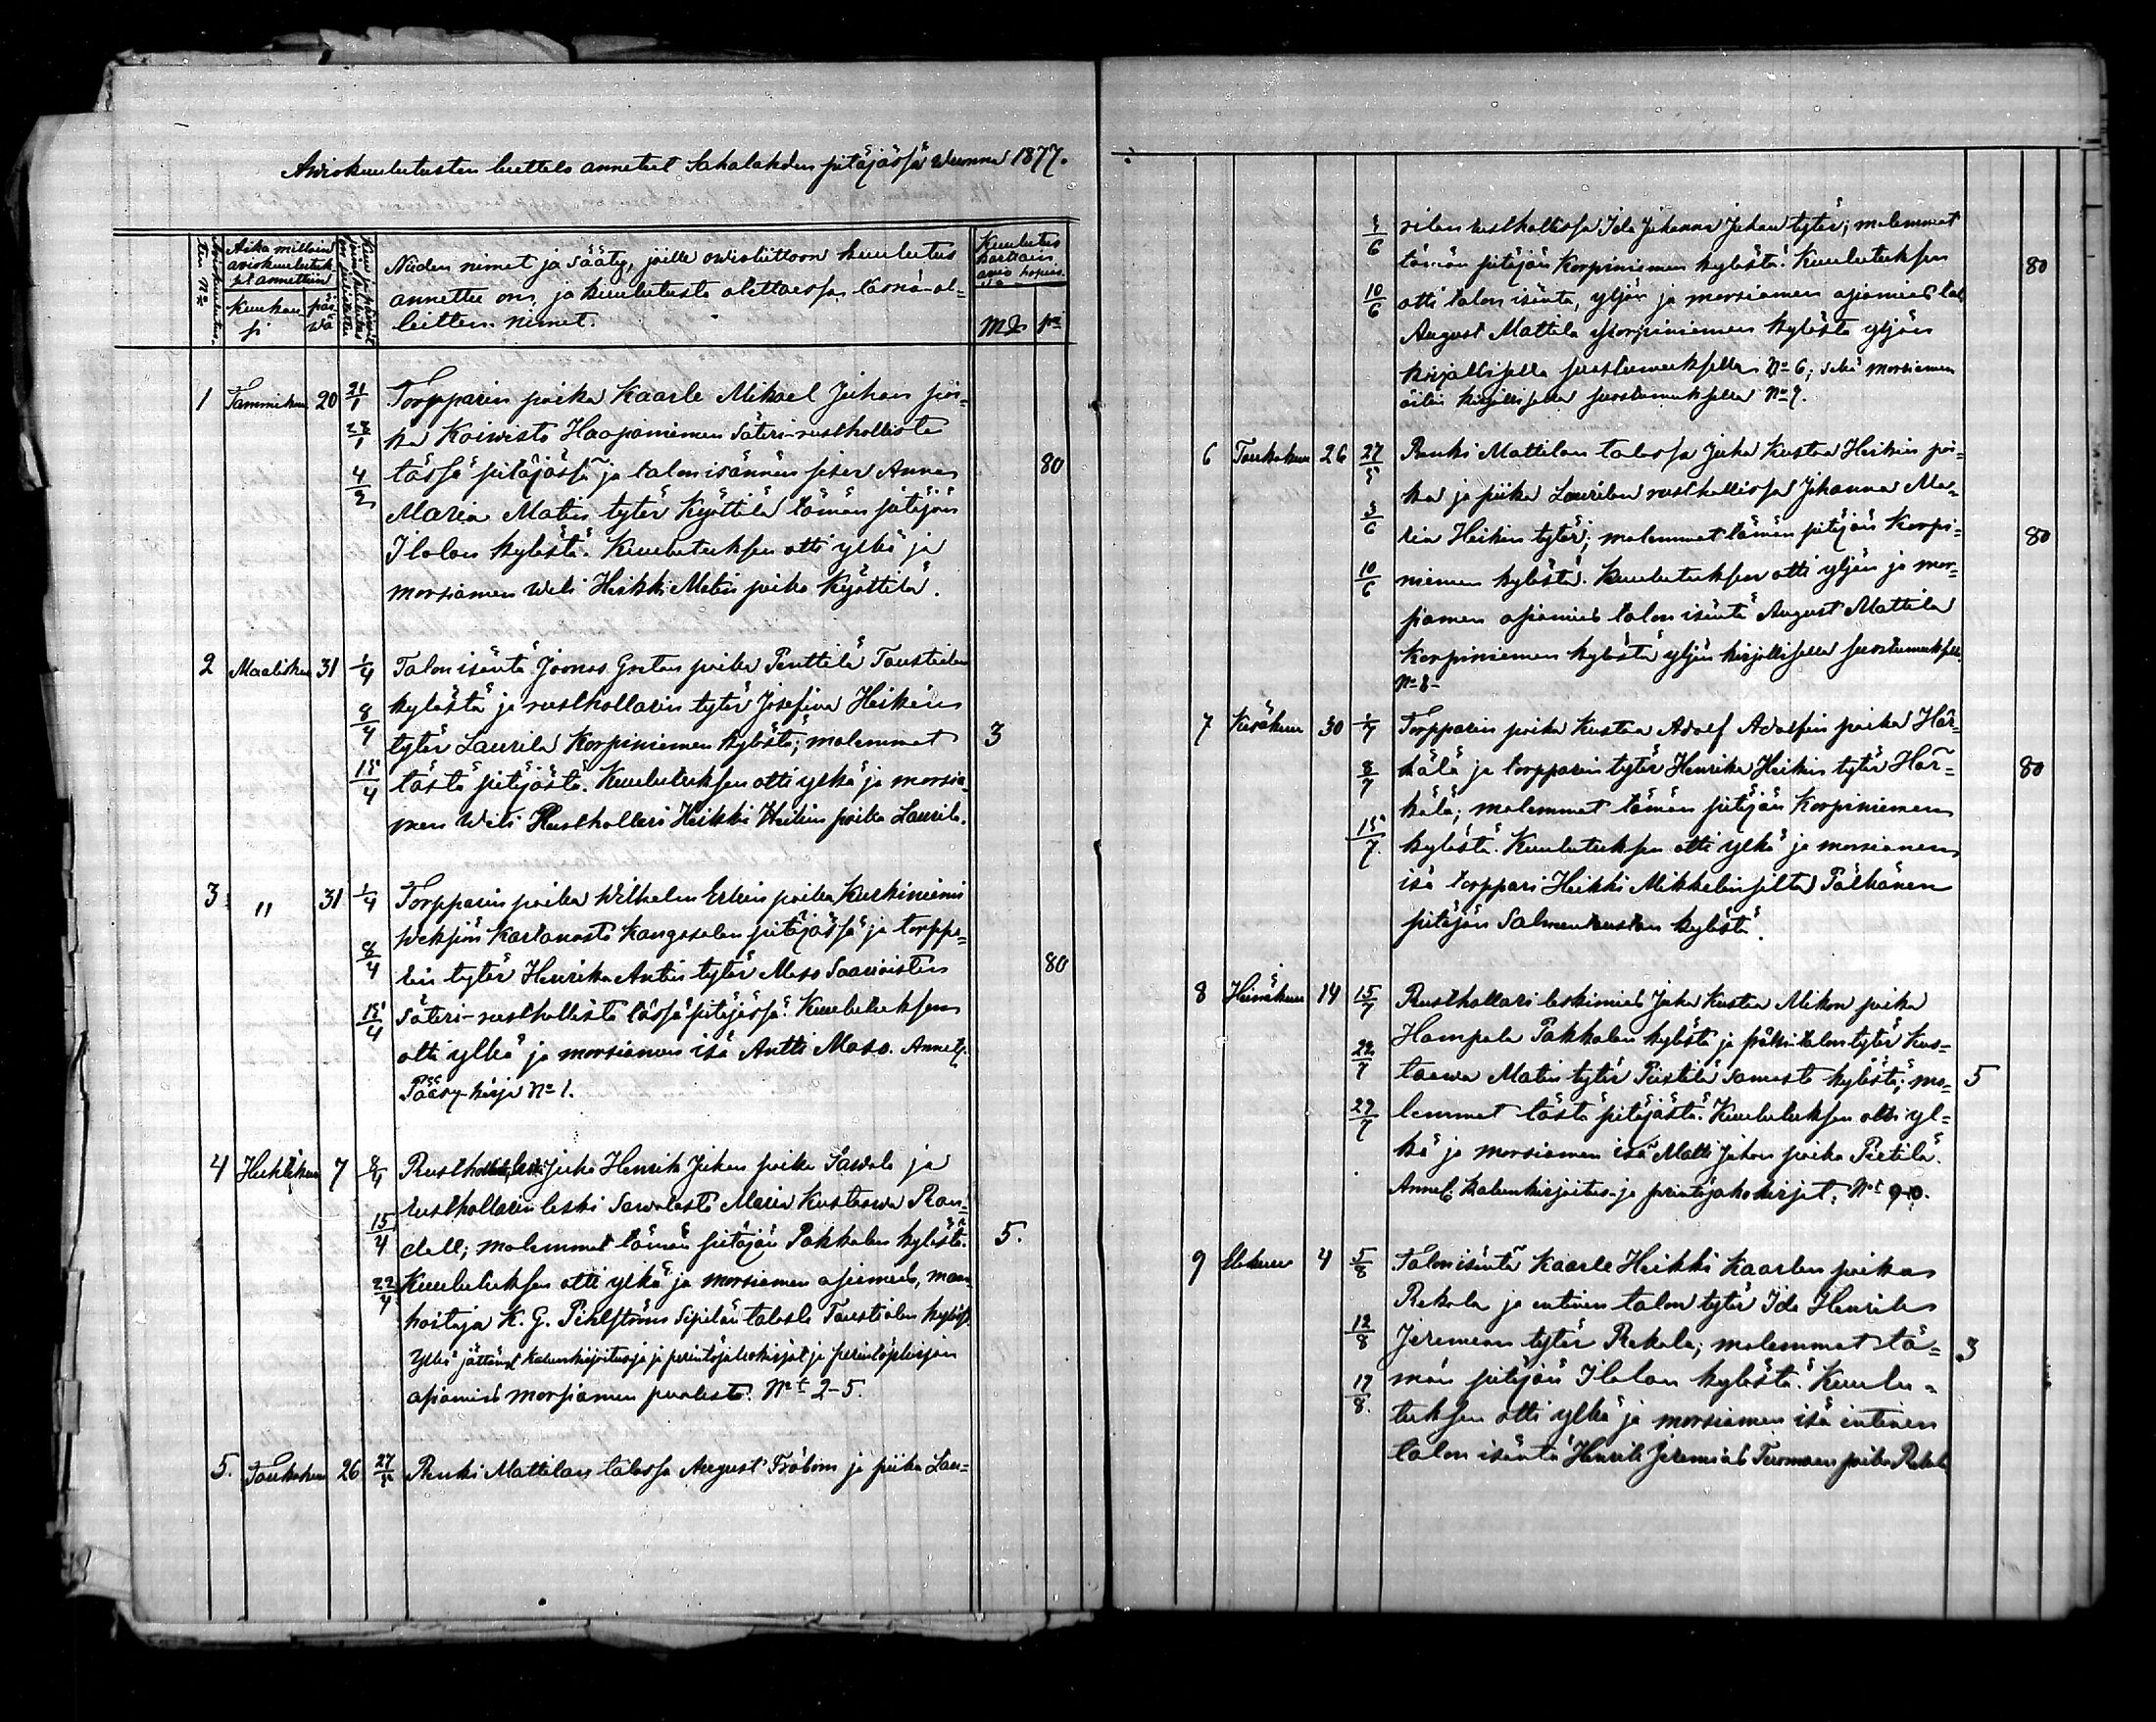 Aviokuulutusten luettelo annetut Sahalahden pitäjässä wuonna 1877.
Aviokuulutus-
ten No
Aika milloin
aviokuulutuk-
set annettiin
Kuukau-
si
päi-
wä
Niiden nimet ja sääty, joille avioliittoon kuulutus
annettu on, ja kuulutusta otettaessa läsnä-ol-
leitten nimet.
Kuulutus
Mk pi
1 Tammikuu 20 21/1 Torpparin poika Kaarle Mikael Juhan poi-
28/1 ka Koiwisto Haapaniemen Säteri-rusthollista
4/2 tässä pitäjässä ja talon isännän sisar Anna 80
Maria Matin tytär Kyöttilä tämän pitäjän
Ilolan kylästä. Kuulutuksen otti ylkä ja
morsiamen weli Heikki Matin poika Kyöttilä.
2 Maalisku 31 1/4 Talon isäntä Joonas Gretan poika Penttilä Taustialan
8/4 kylästä ja rusthollarin tytär Josefina Heikin
tytär Laurila Korpiniemen kylästä; molemmat 3
15/4 tästä pitäjästä. Kuulutuksen otti ylkä ja morsia-
men weli Rusthollari Heikki Heikin poika Laurila.
3 " 31 1/4 Torpparin poika Wilhelm Erkin poika Kurkiniemi
Weksiön Kartanosta Kangasalan pitäjässä ja torppa-
8/4 rin tytär Henrika Antin tytär Maso Saarioisten 80
15/4 Säteri-rusthollista tässä pitäjässä. Kuulutuksen
otti ylkä ja morsiamen isä Antti Maso. Annet.
Pääsy-kirja No 1.
4 Huhtikuu 7 8/4 Juho Henrik Juhan poika Sawola ja
rusthollarin leski Sawolasta Maria Kustaawa Ran-
15/4 dell; molemmat tämän pitäjän Pakkalan kylästä. 5.
22/4 Kuulutuksen otti ylkä ja morsiamen asiamies, maan-
hoitaja K. G. Pihlström Sipilän talosta Taustialan kyläss.
Ylkä jättänyt kalunkirjoitus ja perintöjakokirjat ja
asiamies morsiamen puolesta. Nt 2-5.
5. Toukokuu 26 27/5 Renki Mattilan talossa August Fröbom ja piika Lau-
3/6 rilan rusthollissa Ida Johanna Juhan tytär; molemmat
tämän pitäjän Korpiniemen kylästä. Kuulutuksen 80
10/6 otti talon isäntä, yljän ja morsiamen asiamies tal.
August Mattila Korpiniemen kylästä yljän
kirjallisella suostumuksella No 6; sekä morsiamen
äitin kirjallisella suostumuksella No 7.
6 Toukokuu 26 27/5 Renki Mattilan talossa Juha Kustaa Heikin poi-
ka ja piika Laurilan rusthollissa Johanna Ma-
3/6 ria Heikin tytär; molemmat tämän pitäjän Korpi- 80
10/6 niemen kylästä. Kuulutuksen otti yljän ja mor-
siamen asiamies talon isäntä August Mattila
Korpiniemen kylästä yljän kirjallisella suostumuksella
No 8-
7 Kesäkuu 30 1/7 Torpparin poika Kustaa Adolf Adolfin poika Här-
8/7 kälä ja torpparin tytär Henrika Heikin tytär Här- 80
kälä; molemmat tämän pitäjän Korpiniemen
15/7. kylästä. Kuulutuksen otti ylkä ja morsiamen
isä torppari Heikki Mikkelinpelta Pälkäneen
pitäjän Salmentaustan kylästä.
8 Heinäkuu 14 15/7 Rusthollari leskimies Juha Kustaa Mikon poika
Hampala Pakkalan kylästä ja talon tytär Kus-
22/7 taawa Matin tytär Pietilä samasta kylästä; mo- 5
29/7 lemmat tästä pitäjästä. Kuulutuksen otti yl-
kä ja morsiamen isä Matti Juhan poika Pietilä.
Annet. kalunkirjoitus- ja perintöjakokirjat. Nt 9-10.
9 Elokuu 4 5/8 Talon isäntä Kaarle Heikki Kaarlen poika
Rekola ja entinen talon tytär Ida Henrika
12/8 Jeremian tytär Rekola; molemmat tä- 3
19/8. män pitäjän Ilolan kylästä. Kuulu-
tuksen otti ylkä ja morsiamen isä entinen
talon isäntä Henrik Jeremias Tuomaan poika Rekola